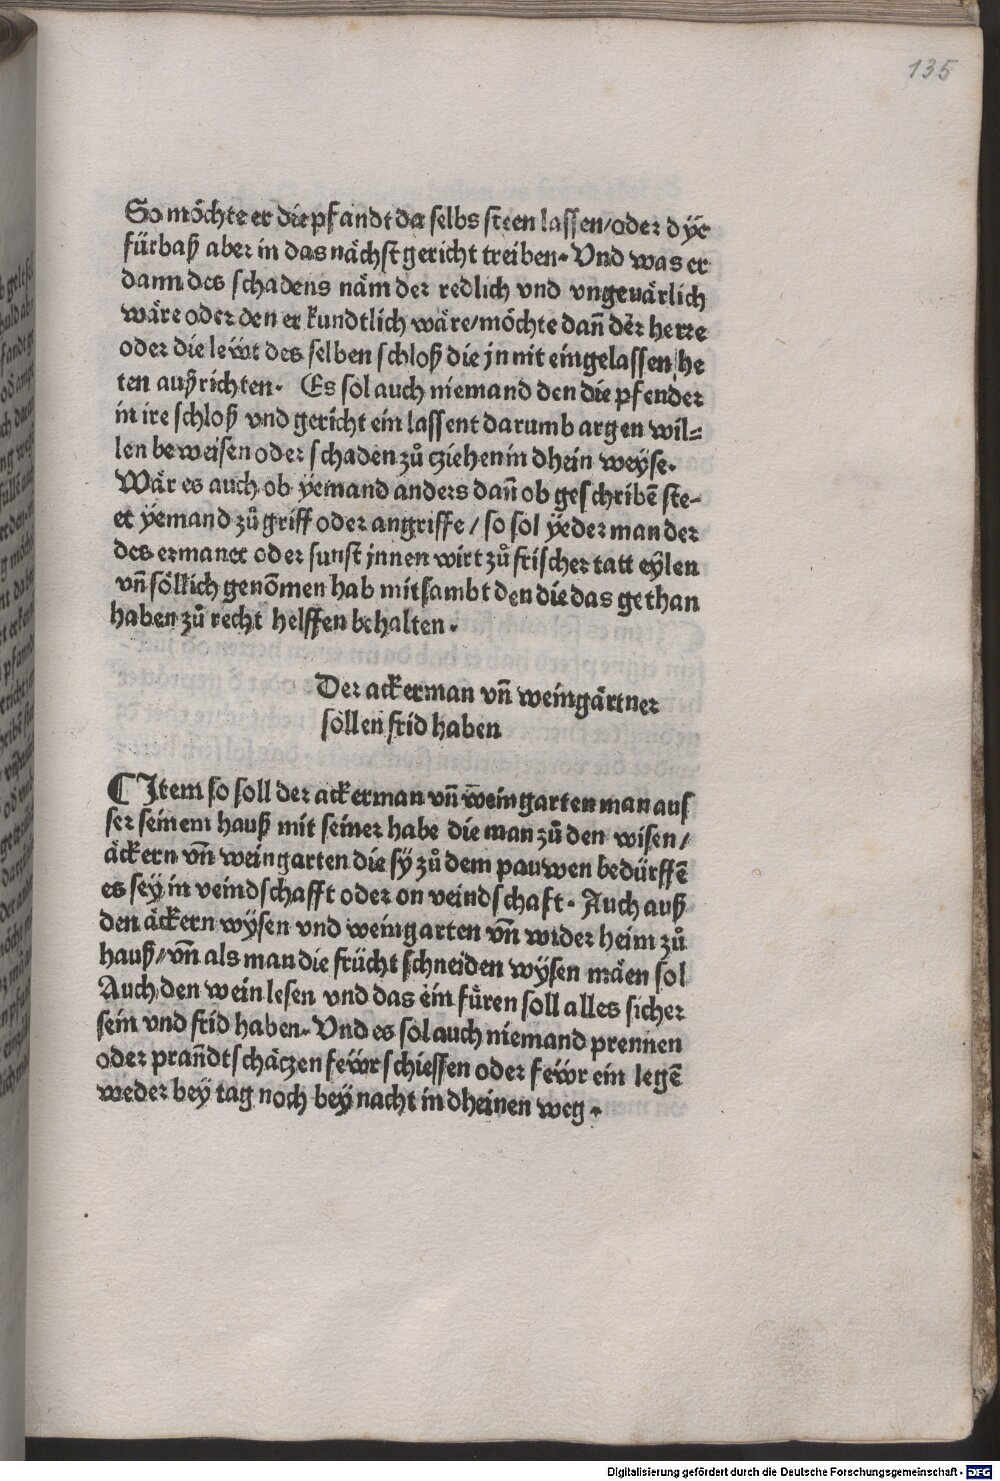 135
So möchte er die pfandt da selbs steen lassen/oder dye
fürbaß aber in das nächst gericht treiben. Vnd was er
dann des schadens näm der redlich vnd vngeuärlich
wäre oder den er kundtlich wäre/möchte dañ der herre
oder die leẅt des selben schloß die jn nit eingelassen he
ten außrichten. Es sol auch niemand den die pfender
in ire schloß vnd gericht ein lassent darumb argen wil⸗
len beweisen oder schaden zů cziehen in dhein weyse.
Wär es auch ob yemand anders dañ ob geschribē ste⸗
et yemand zů griff oder angriffe / so sol yeder man der
des ermanet oder sunst jnnen wirt zů frischer tatt eylen
vñ söllich genõmen hab mitsambt den die das gethan
haben zů recht helffen behalten.
Der ackerman vñ weingärtner
söllen frid haben
¶ Item so soll der ackerman vñ weingarten man aus
ser seinem hauß mit seiner habe die man zů den wisen/
äckern vñ weingarten die sÿ zů dem pauwen bedürffē
es seÿ in veindschafft oder on veindschaft. Auch auß
den äckern wÿsen vnd weingarten vñ wider heim zů
hauß/vñ als man die frücht schneiden wÿsen mäen sol
Auch den wein lesen vnd das ein füren soll alles sicher
sein vnd frid haben. Vnd es sol auch niemand prennen
oder prañdtschäczen feẅr schiessen oder feẅr ein legē
weder beÿ tag noch beÿ nacht in dheinen weg.
Digitalisierung gefördert durch die Deutsche Forschungsgemeinschaft - DFG